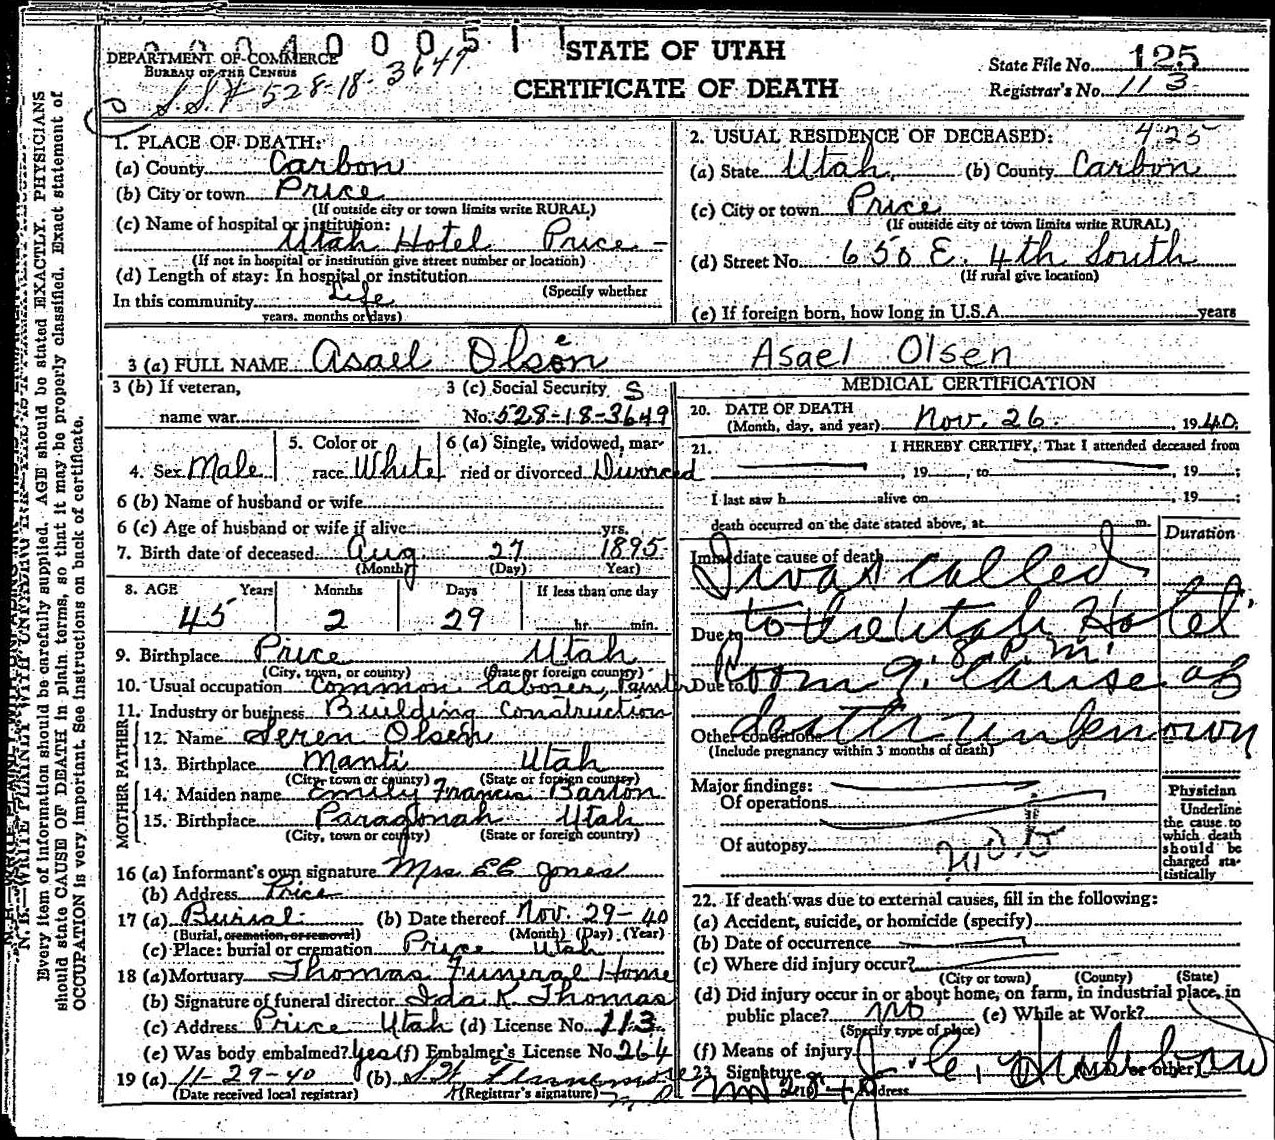 00040005 1 1
STATE OF UTAH
CERTIFICATE OF DEATH
DEPARTMENT OF COMMERCE
BUREAU OF THE CENSUS
S.S.# 528-18-3649
State File No. 125
Registrar's No. 113
N. B.—WRITE PLAINLY WITH UNFADING
Every item of information should be carefully supplied. AGE should be stated EXACTLY. PHYSICIANS
should state CAUSE OF DEATH in plain terms, so that it may be properly classified. Exact statement of
OCCUPATION is very important. See instructions on back of certificate.
1. PLACE OF DEATH:
(a) County Carbon
(b) City or town Price
(If outside city or town limits write RURAL)
(c) Name of hospital or institution:
Utah Hotel Price -
(If not in hospital or institution give street number or location)
(d) Length of stay: In hospital or institution
(Specify whether
In this community Life
years, months or days)
2. USUAL RESIDENCE OF DECEASED: 425
(a) State Utah (b) County Carbon
(c) City or town Price
(If outside city or town limits write RURAL)
(d) Street No. 650 E. 4th South
(If rural give location)
(e) If foreign born, how long in U.S.A. years
3 (a) FULL NAME Asael Olsen Asael Olsen
3 (b) If veteran,
name war
3 (c) Social Security S
No. 528-18-3649
4. Sex Male
5. Color or
race White
6 (a) Single, widowed, mar-
ried or divorced Divorced
6 (b) Name of husband or wife
6 (c) Age of husband or wife if alive yrs.
7. Birth date of deceased Aug 27 1895
(Month) (Day) Year)
8. AGE Years Months Days If less than one day
45 2 29 hr. min.
9. Birthplace Price Utah
(City, town, or county) (State or foreign country)
10. Usual occupation Common laborer, Painter
11. Industry or business Building Construction
FATHER
12. Name Seren Olsen
13. Birthplace Manti Utah
(City, town or county) (State or foreign country)
MOTHER
14. Maiden name Emily Francis Barton
15. Birthplace Paragonah Utah
(City, town or county) (State or foreign country)
16 (a) Informant's own signature Mrs. EE Jones
(b) Address Price
17 (a) Burial (b) Date thereof Nov. 29-40
(Burial, cremation, or removal) (Month) (Day) (Year)
(c) Place: burial or cremation Price Utah
18 (a) Mortuary Thomas Funeral Home
(b) Signature of funeral director Ida K Thomas
(c) Address Price Utah (d) License No. 113
(e) Was body embalmed? Yes (f) Embalmer's License No. 264
19 (a) 11-29-40 (b)
(Date received local registrar) (Registrar's signature)
MEDICAL CERTIFICATION
20. DATE OF DEATH
(Month, day, and year) Nov. 26 1940
21. I HEREBY CERTIFY, That I attended deceased from
, 19 , to , 19 ;
I last saw h alive on , 19 ;
death occurred on the date stated above, at m.
Duration
Immediate cause of death I was called
Due to to the Utah Hotel
8 P.M.
Due to Room 9. Cause of
Other conditions death unknown
(Include pregnancy within 3 months of death)
Major findings:
Of operations
Of autopsy
Physician
Underline
the cause to
which death
should be
charged sta-
tistically
22. If death was due to external causes, fill in the following:
(a) Accident, suicide, or homicide (specify)
(b) Date of occurrence
(c) Where did injury occur?
(City or town) (County) (State)
(d) Did injury occur in or about home, on farm, in industrial place, in
public place? no (e) While at Work?
(Specify type of place)
(f) Means of injury
23. Signature J. C. Hubbard
Address